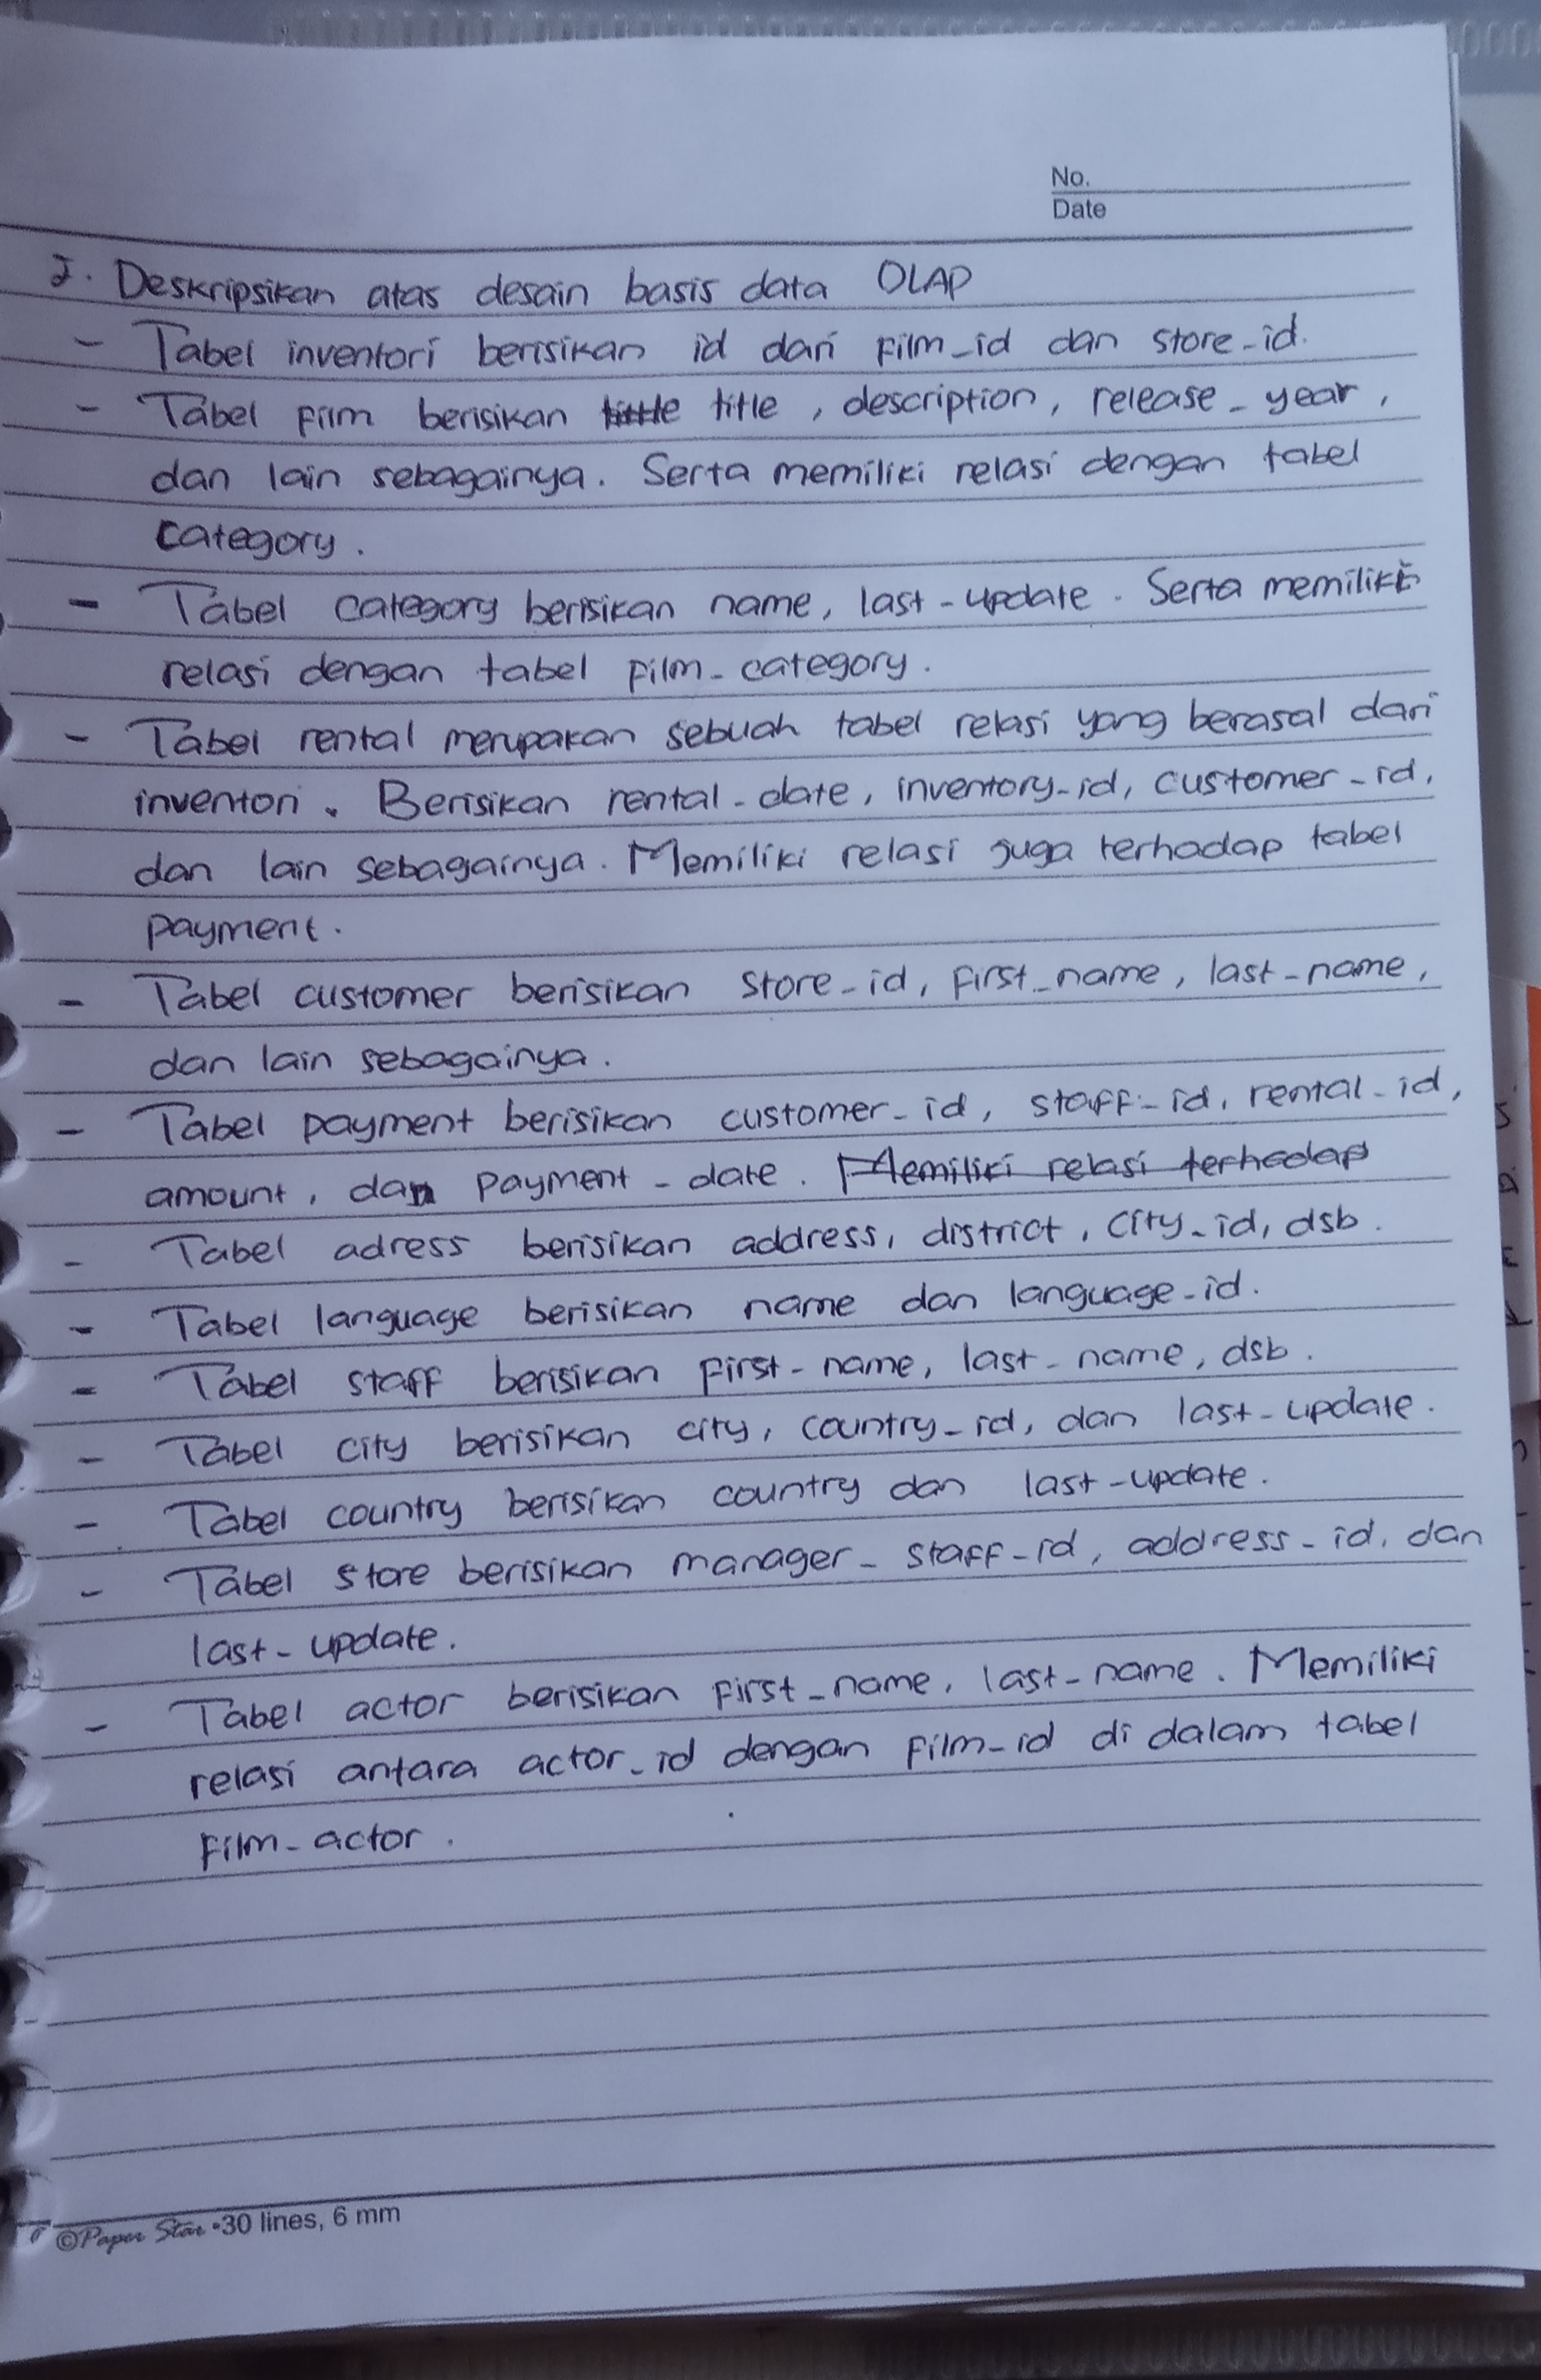 No.
Date
2. Deskripsikan atas desain basis data OLAP
- Tabel inventori berisikan id dari film_id dan store_id.
- Tabel film berisikan title, description, release_year,
dan lain sebagainya. Serta memiliki relasi dengan tabel
category.
- Tabel category berisikan name, last-update. Serta memiliki
relasi dengan tabel film_category.
- Tabel rental merupakan sebuah tabel relasi yang berasal dari
inventori. Berisikan rental_date, inventory_id, customer_id,
dan lain sebagainya. Memiliki relasi juga terhadap tabel
payment.
- Tabel customer berisikan store_id, first_name, last_name,
dan lain sebagainya.
- Tabel payment berisikan customer_id, staff_id, rental_id,
amount, dan payment_date. Memiliki relasi terhadap
- Tabel adress berisikan address, district, city_id, dsb.
- Tabel language berisikan name dan language_id.
- Tabel staff berisikan first_name, last_name, dsb.
- Tabel city berisikan city, country_id, dan last_update.
- Tabel country berisikan country dan last_update.
- Tabel store berisikan manager_staff_id, address_id, dan
last_update.
- Tabel actor berisikan first_name, last_name. Memiliki
relasi antara actor_id dengan film_id di dalam tabel
film_actor.
©Paper Star •30 lines, 6 mm